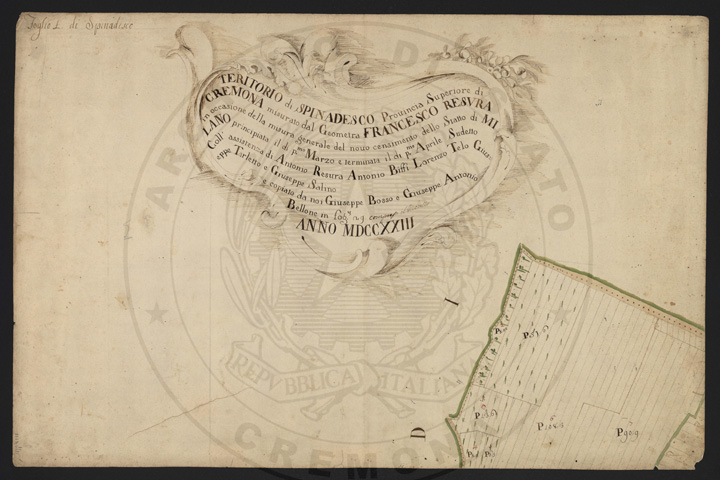 Foglio 1. di Spinadesco
TERITORIO di SPINADESCO Provincia Superiore di
CREMONA misurato dal Geometra FRANCESCO RESVRA
in occasione della misura generale del novo censimento dello Statto di MI
LANO principiata il di p.mo Marzo e terminata il di p.mo Aprile Sudetto
Coll' assistenza di Antonio Resura Antonio Biffi Lorenzo Telo Gius
eppe Tirletto e Giuseppe Solino
e copiato da noi Giuseppe Bosso e Giuseppe Antonio
Bellone in fog.li n. 9
ANNO MDCCXXIII
I
D
REPVBBLICA ITALIANA
ARCHIVIO DI STATO
CREMONA